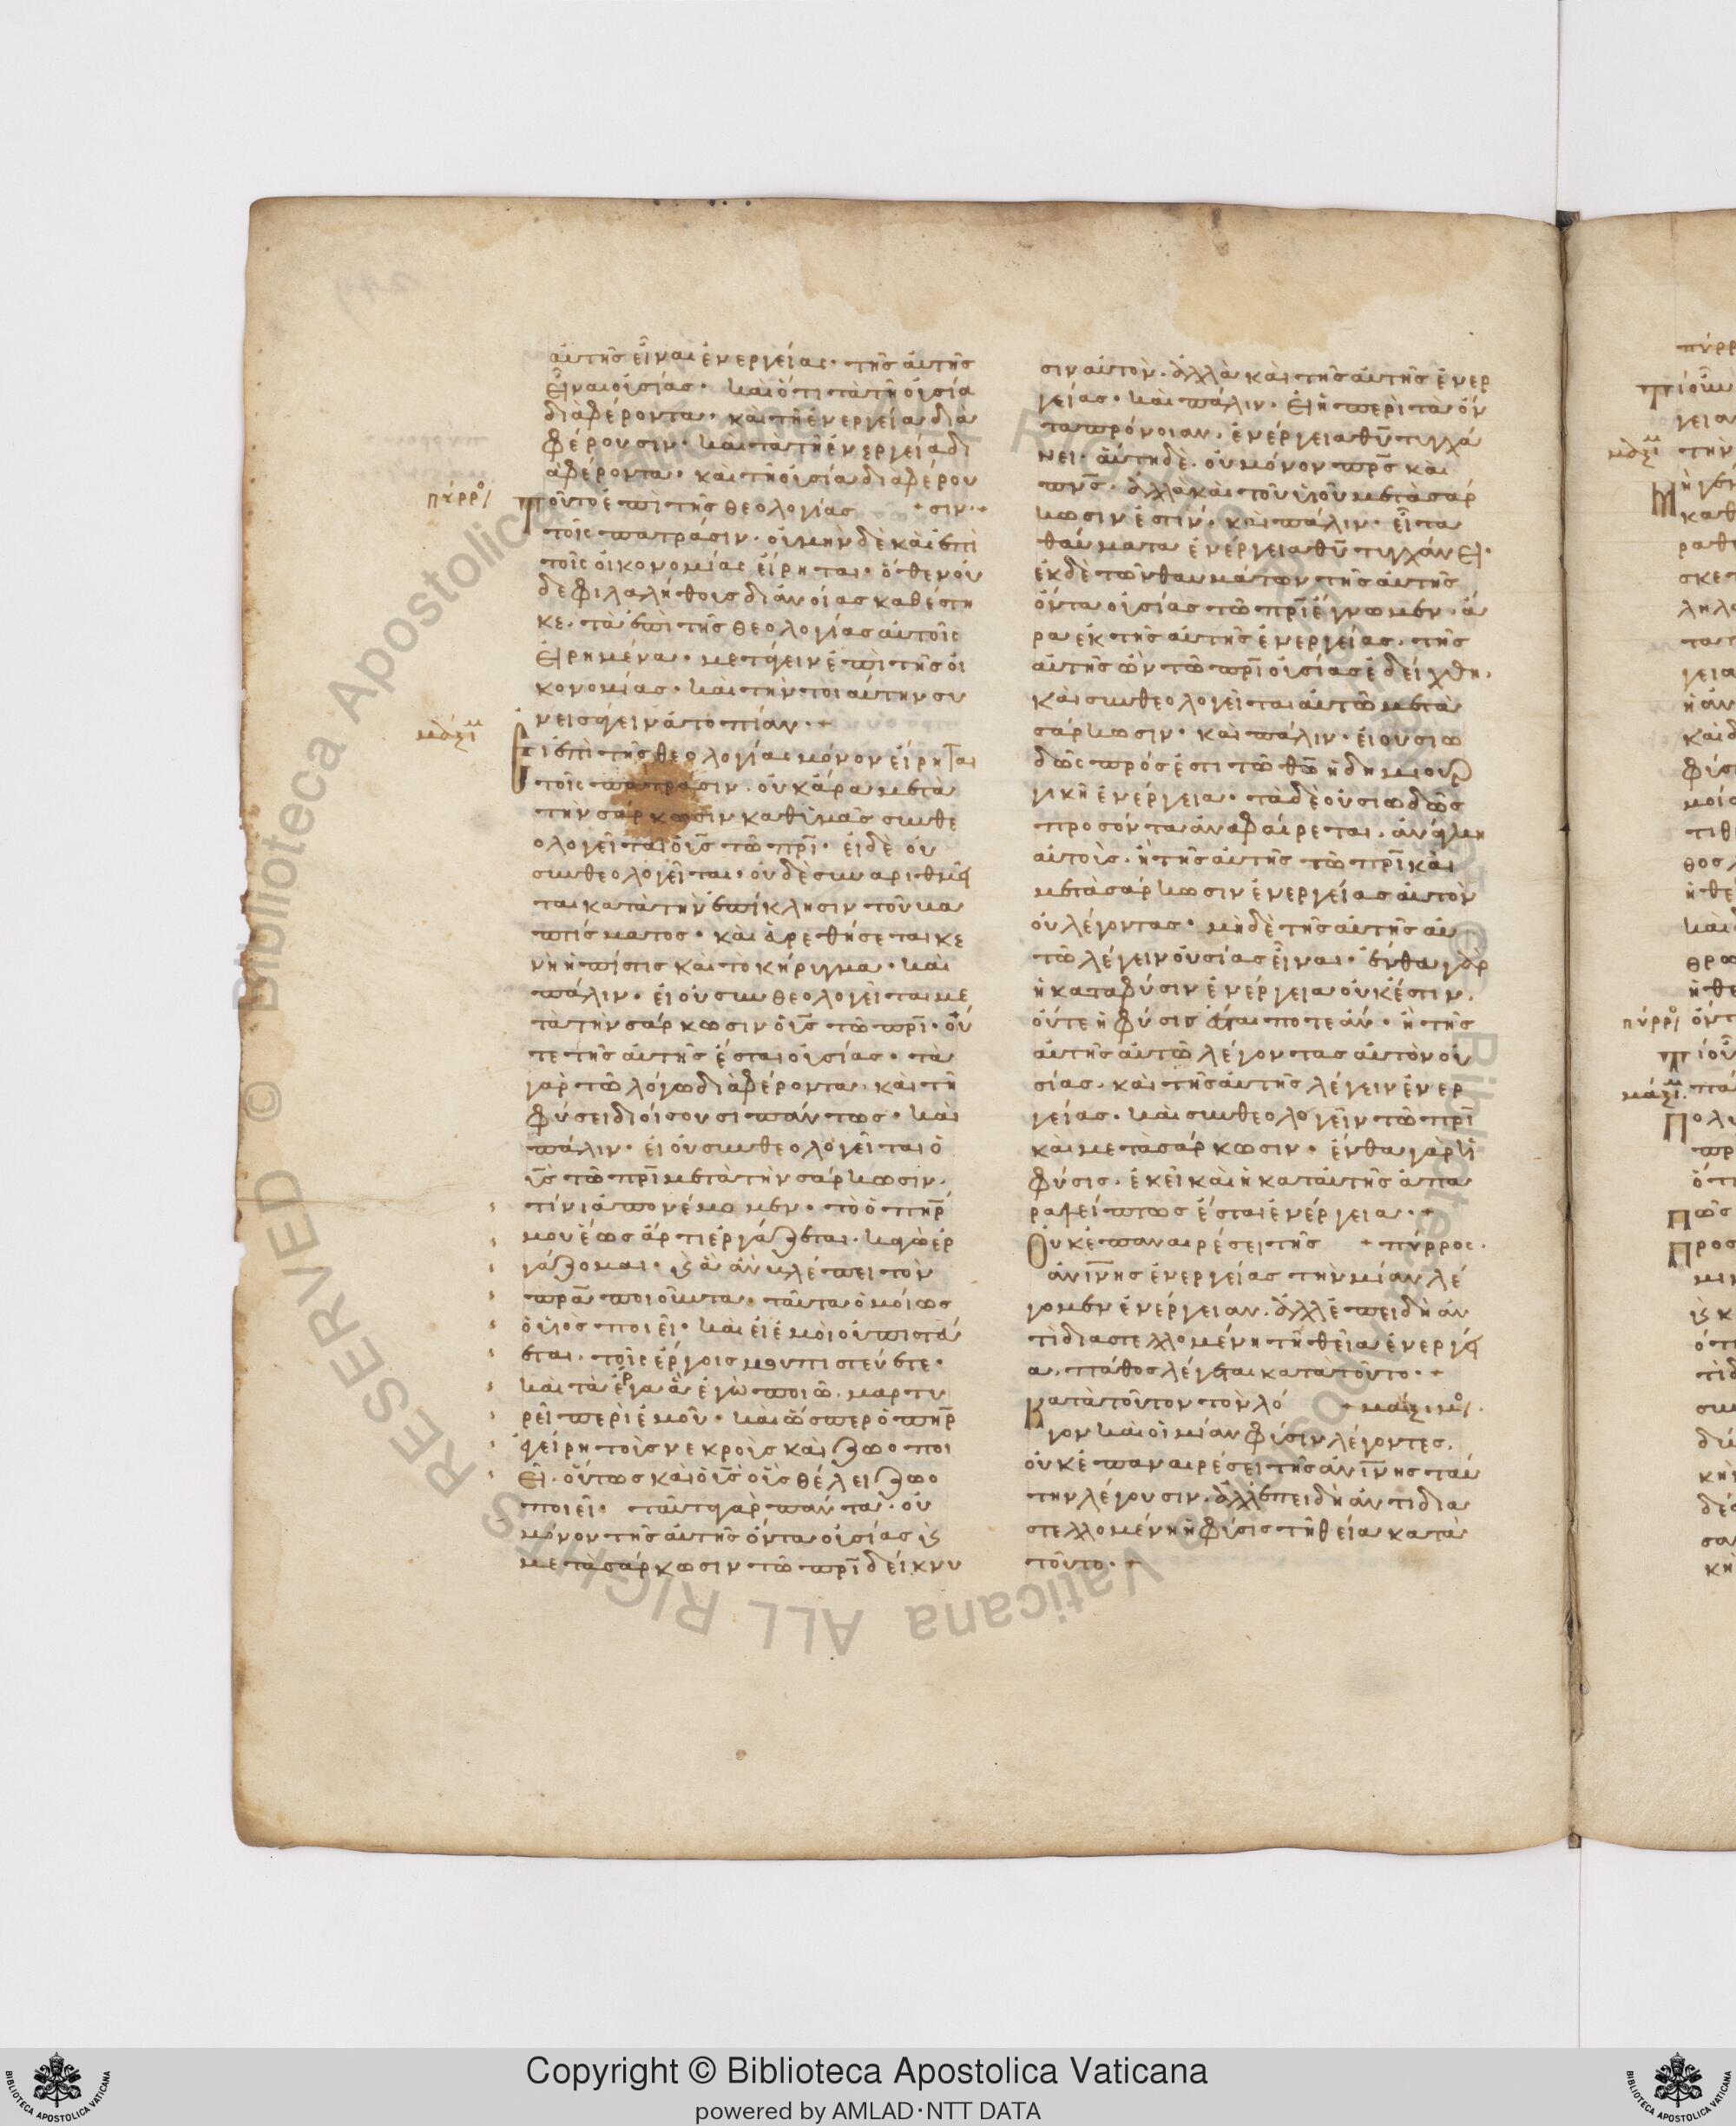 αὐτῆς εἶναι ἐνεργείας· τῆς αὐτῆς
εἶναι οὐσίας· καὶ ὅτι τὰ τῇ οὐσία
διαφέροντα· καὶ τῇ ἐνεργεία δια
φέρουσιν· καὶ τὰ τῇ ἐνεργεία δι
αφέροντα· καὶ τῇ οὐσία διαφέρου
πύρρο
Τοῦτο ἐπὶ τῆς θεολογίας +σιν·+
τοῖς πατράσιν· οὐ μὴν δὲ καὶ ἐπὶ
τοῖς οἰκονομίας εἴρηται· ὅθεν οὐ
δε φιλαλήθους διανοίας καθέστη
κε· τὰ ἐπὶ τῆς θεολογίας αὐτοῖς
εἰρημένα· μετάγειν ἐπὶ τῆς οἰ
κονομίας· καὶ τὴν τοιαύτην συ
νεισάγειν ἀτοπίαν·+
μάξιμ
Εἰ ἐπὶ τῆς θεολογίας μόνον εἴρηται
τοῖς πατράσιν· οὐκ ἄρα μετὰ
τὴν σάρκωσιν καθ' ἡμᾶς συνθε
ολογεῖται ὁ υἱς τῶ πρι· εἰ δὲ οὐ
συνθεολογεῖται· οὐδὲ συναριθμεῖ
ται κατὰ τὴν ἐπίκλησιν τοῦ βα
πτίσματος· καὶ εὑρεθήσεται κε
νὴ ἡ πίστις καὶ τὸ κήρυγμα· καὶ
πάλιν· εἰ οὐ συνθεολογεῖται με
τὰ τὴν σάρκωσιν ὁ υἱς τῶ πρι· οὔ
τε τῆς αὐτῆς ἔσται οὐσίας· τὰ
γὰρ τῶ λόγω διαφέροντα· καὶ τῇ
φύσει διοίσουσι πάντως· καὶ
πάλιν· εἰ οὐ συνθεολογεῖται ὁ
υἱς τῶ πρι μετὰ τὴν σάρκωσιν·
τίνι ἀπονέμωμεν· τὸ ὁ πηρ
μου ἕως ἄρτι ἐργάζεται· καγὼ ἐρ
γάζομαι· καὶ ἃ ἂν βλέπει τὸν
πρα ποιοῦντα· ταῦτα ὁμοίως
ὁ υἱὸς ποιεῖ· καὶ εἰ ἐμοὶ οὐ πιστεύ
εται· τοῖς ἔργοις μου πιστεύετε·
καὶ τὰ ἔργα ἃ ἐγὼ ποιῶ· μαρτυ
ρεῖ περὶ ἐμοῦ· καὶ ὥσπερ ὁ πηρ
ἐγείρη τοὺς νεκροὺς καὶ ζωοποι
εῖ· οὕτως καὶ ὁ υἱς οὓς θέλει ζωο
ποιεῖ· ταῦτα γὰρ πάντα· οὐ
μόνον τῆς αὐτῆς ὄντα οὐσίας καὶ
μετὰ σάρκωσιν τῶ πρι δείκνυ
σιν αὐτὸν· ἀλλὰ καὶ τῆς αὐτῆς ἐνερ
γείας· καὶ πάλιν· εἰ ἡ περὶ τὰ ὄν
τα πρόνοια· ἐνέργεια θυ τυγχά
νει· αὕτη δὲ· οὐ μόνον πρς καὶ
πνς· ἀλλὰ καὶ τοῦ υἱοῦ μετὰ σάρ
κωσιν ἐστίν· καὶ πάλιν· εἰ τὰ
θαύματα ἐνέργεια θυ τυγχάνει·
ἐκ δὲ τῶν θαυμάτων τῆς αὐτῆς
ὄντα οὐσίας τῶ πρι ἔγνωμεν· ἄ
ρα ἐκ τῆς αὐτῆς ἐνεργείας· τῆς
αὐτῆς ὢν τῶ πρι οὐσίας ἐδείχθη·
καὶ συνθεολογεῖται αὐτῶ μετὰ
σάρκωσιν· καὶ πάλιν· εἰ ουσιω
δῶς πρόσεστι τῶ θω ἡ δημιουρ
γικὴ ἐνέργεια· τὰ δὲ οὐσιωδῶς
προσόντα ἀναφαίρεται· ἀνάγκη
αὐτοὺς· ἢ τῆς αὐτῆς τῶ πρι καὶ
μετὰ σάρκωσιν ἐνεργείας αὐτὸν
οὐ λέγοντας· μὴδὲ τῆς αὐτῆς αὐ
τῶ λέγειν οὐσίας εἶναι· ἔνθα γὰρ
ἡ κατα φύσιν ἐνέργεια οὐκ ἔστιν·
οὔτε ἡ φύσις ἔσται ποτε ἄν· ἢ τῆς
αὐτῆς αὐτῶ λέγοντας αὐτὸν οὐ
σίας· καὶ τῆς αὐτῆς λέγειν ἐνερ
γείας· καὶ συνθεολογεῖν τῶ πρι
καὶ μετὰ σάρκωσιν· ἔνθα γὰρ ἡ
φύσις· ἐκεῖ καὶ ἡ κατ' αὐτῆς ἀπα
ραλείπτως ἔσται ἐνέργεια·+
Οὐκ ἐπαναιρέσει τῆς +πύρρος·
ἀνίνης ἐνεργείας τὴν μίαν λέ
γομεν ἐνέργειαν· ἀλλ' ἐπειδὴ ἀν
τιδιαστελλομένη τῇ θεία ἐνεργεί
α· πάθος λέγεται κατα τοῦτο·+
Κατὰ τοῦτον τὸν λό +μάξιμο·
γον καὶ οἱ μίαν φύσιν λέγοντες·
οὐκ ἐπαναιρέσει τῆς ἀνίνης ταύ
την λέγουσιν· ἀλλ' ἐπειδὴ ἀντιδια
στελλομένη ἡ φύσις τῇ θεία κατὰ
τοῦτο·+
Copyright © Biblioteca Apostolica Vaticana
powered by AMLAD·NTT DATA